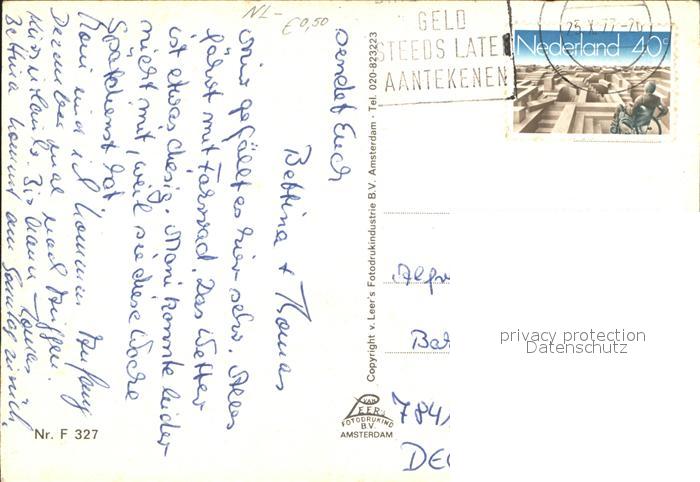 NL-
€ 0,50
GELD
STEEDS LATEN
AANTEKENEN
25.X.77-20
Nederland 40c
sendet Euch
Bettina + Thomas
Mir gefällt es hier sehr. Alles
fährt mit Fahrrad. Das Wetter
ist etwas diesig. Mani konnte leider
nicht mit, weil sie diese Woche
Spätdienst hat.
Mani und ich kommen Anfang
Dezember mal nach
Bis dann Thomas
Bettina kommt am Samstag zurück.
Copyright v. Leer's Fotodrukindustrie B.V. Amsterdam - Tel. 020-823223
VAN
LEER'S
FOTODRUKIND
B.V.
AMSTERDAM
Alfr
Bad
784
DEU
privacy protection
Datenschutz
Nr. F 327